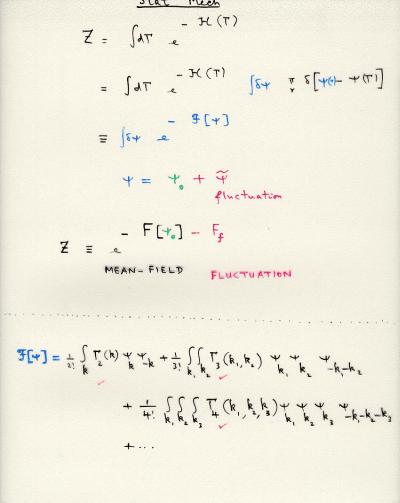 Stat Mech
Z = ∫dΓ e^{- H(Γ)}
= ∫dΓ e^{- H(Γ)} ∫δψ π_r δ[ψ(r) - ψ(Γ)]
≡ ∫δψ e^{- F[ψ]}
ψ = ψ₀ + ψ̃
fluctuation
Z ≡ e^{- F[ψ₀] - F_f}
MEAN-FIELD FLUCTUATION
F[ψ] = 1/2! ∫_k Γ₂(k) ψ_k ψ_{-k} + 1/3! ∫_{k₁}∫_{k₂} Γ₃(k₁,k₂) ψ_{k₁} ψ_{k₂} ψ_{-k₁-k₂}
+ 1/4! ∫_{k₁}∫_{k₂}∫_{k₃} Γ₄(k₁,k₂,k₃) ψ_{k₁} ψ_{k₂} ψ_{k₃} ψ_{-k₁-k₂-k₃}
+ ...